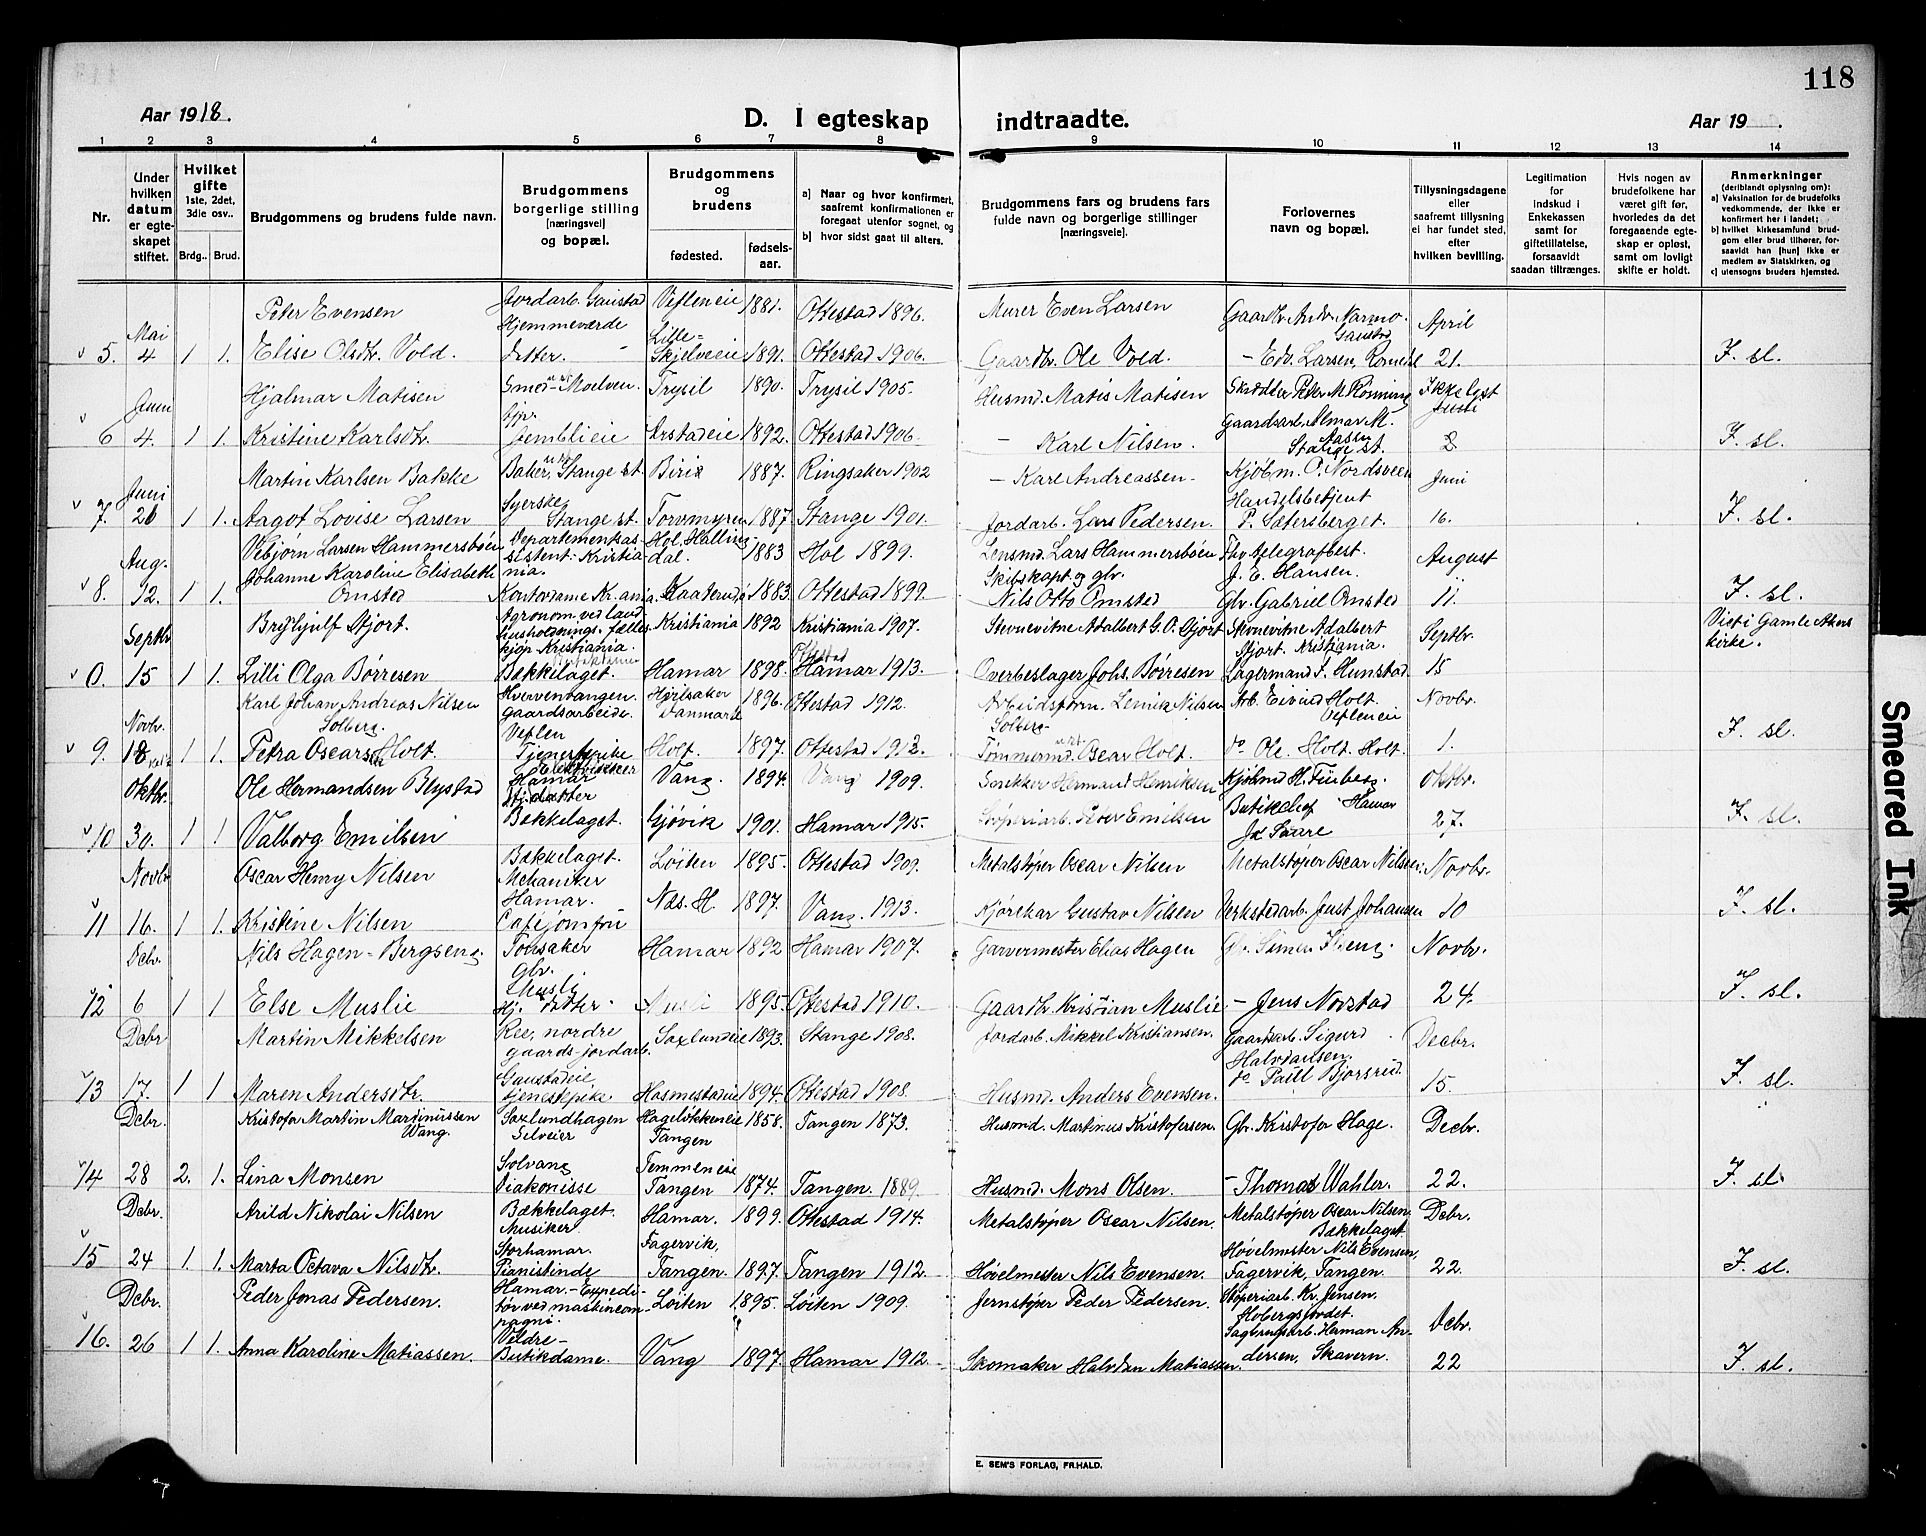 118
Aar 1918.
D. I egteskap indtraadte.
Aar 19 .
1 2 3 4 5 6 7 8 9 10 11 12 13 14
Nr.
Under hvilken datum er egteskapet stiftet.
Hvilket gifte 1ste, 2det, 3die osv..
Brdg.. Brud.
Brudgommens og brudens fulde navn.
Brudgommens borgerlige stilling [næringsvei] og bopæl.
Brudgommens og brudens
fødested. fødselsaar.
a) Naar og hvor konfirmert, saafremt konfirmationen er foregaat utenfor sognet, og
b) hvor sidst gaat til alters.
Brudgommens fars og brudens fars fulde navn og borgerlige stillinger [næringsveie].
Forlovernes navn og bopæl.
Tillysningsdagene eller saafremt tillysning ei har fundet sted, efter hvilken bevilling.
Legitimation for indskud i Enkekassen samt for giftetillatelse, forsaavidt saadan tiltrænges.
Hvis nogen av brudefolkene har været gift før, hvorledes da det foregaaende egteskap er opløst, samt om lovligt skifte er holdt.
Anmerkninger (deriblandt oplysning om):
a) Vaksination for de brudefolks vedkommende, der ikke er konfirmert her i landet;
b) hvilket kirkesamfund brudgom eller brud tilhører, forsaavidt han [hun] ikke er medlem av Statskirken, og
c) utensogns bruders hjemsted.
Peter Evensen Jordarb. Gaustad Vefleneie 1881. Ottestad 1896. Murer Even Larsen Gaardbr. Andr. Narmo Gaustad April
5. Mai 4 1 1. Elise Olsdtr. Vold. Hjemmeværde datter. Lille-Skjelveeie 1891. Ottestad 1906. Gaardbr. Ole Vold. - Edv. Larsen, 21. F. sl.
Hjalmar Matisen Smed Moelven Trysil 1890. Trysil 1905. Husmd. Matis Matisen Skrædder Peter M. Rønning Ikke lyst
6 Juni 4. 1 1. Kristine Karlsdtr. Arstadeie 1892. Ottestad 1906. - Karl Nilsen. Gaardsarb. Almar M. Aasen Stange st. Juni 2 F. sl.
Martin Karlsen Bakke Baker, Stange st. Biri 1887. Ringsaker 1902 - Karl Andreassen. Kjøbm. O. Nordsveen Juni
7. Juni 20 1 1. Aagot Lovise Larsen Syerske Stange st. Torvmyren 1887 Stange 1901. Jordarb. Lars Pedersen. Handelsbetjent P. Sætersberget. 16. F. sl.
Vebjørn Larsen Hammersbøen Departementsassistent. Kristiania. Hol, Hallingdal. 1883 Hol 1899. Lensmd. Lars Hammersbøen Thv. Telegrafbest. J. E. Hansen. August
8. Aug. 12. 1 1. Johanne Karoline Elisabeth Ornsted Kontordame Kr.ania. Kaaterud 1883. Ottestad 1899. Skibskapt. og gbr. Nils Otto Ornsted Gbr. Gabriel Ornsted 11. F. sl.
Brynjulf Hjort. Agronom ved landhusholdnings-fælleskjøp Kristiania. Kristiania 1892 Kristiania 1907. Stevnevitne Adalbert G. O. Hjort Stevnevitne Adalbert Hjort. Kristiania. Septbr. Viet i Gamle Akers kirke.
0. Septbr 15 1 1. Lilli Olga Børresen Bækkelaget. Hamar 1898. Ottestad Hamar 1913. Overbeslager Johs. Børresen Lagermand J. Hunstad 15
Karl Johan Andreas Nilsen Solberg. Hverventangen. Gaardsarbeider Danmark 1896. Ottestad 1912. Arbeidsform. Nilsen Solberg Arb. Eivind Holt. Vefleneie Novbr.
9. Novbr. 18 1 1. Petra Oscarsdtr Holt. Veflen Tjenestepike Holt. 1897. Ottestad 1912. Tømmermd. Oscar Holt. do Ole. Holt. Holt. 1. F. sl.
Ole Hermandsen Blystad Elektriker Hamar Vang. 1894. Vang 1909. Snekker Hermand Henriksen Kjøbmd H. Finberg. Hamar Oktbr.
10 Oktbr. 30. 1 1 Valborg Emilsen Hj. datter Bækkelaget. Gjøvik 1901. Hamar 1915. Støperiarb. Peter Emilsen Butikchef 27. F. sl.
Oscar Henry Nilsen Bækkelaget. Mekaniker Løiten 1895. Ottestad 1909. Metalstøper Oscar Nilsen Metalstøper Oscar Nilsen. Novbr.
11 Novbr 16. 1 1. Kristine Nilsen Hamar. Cafejomfru Næs. H. 1897. Vang. 1913. Kjørekar Gustav Nilsen Verkstedarb. Just Johansen 10 F. sl.
Nils Hagen-Bergseng. Gbr. Hamar 1892 Hamar 1907. Garvermester Elias Hagen Novbr.
12 Dcbr. 6 1 1 Else Muslie Musli Hj. datter Musli 1895. Ottestad 1910. Gaardbr Kristian Muslie - Jens Norstad 24. F. sl.
Martin Mikkelsen Ree, nordre gaards-jordarb. Saxlundeie 1893. Stange 1908. Jordarb. Mikkel Kristiansen. Gaardsarb. Sigurd Halvdansen. Decbr.
13 Dcbr 17. 1 1 Maren Andersdtr. Gaustadeie, tjenestepike Hosmestadeie 1894. Ottestad 1908. Husmd. Anders Evensen. do Paul Bjørsrud 15. F. sl.
Kristofer Martin Martinussen Wang. Saxlundhagen Selveier Hageløkkeneie Tangen 1858. Tangen 1873. Husmd. Martinus Kristofersen. Gbr. Kristofer Hage. Decbr.
14 Dcbr. 28 2. 1. Lina Monsen Solvang Diakonisse Temmeneie Tangen 1874. Tangen. 1889. Husmd. Mons Olsen. - Thomas Wahler. 22. F. sl.
Arild Nikolai Nilsen Bækkelaget. Musiker Hamar. 1899. Ottestad 1914. Metalstøper Oscar Nilsen. Metalstøper Oscar Nilsen. Bækkelaget Dcbr.
15 Dcbr. 24 1. 1. Marta Octava Nilsdtr. Storhamar. Pianistinde Fagervik, Tangen. 1897. Tangen 1912. Høvelmester Nils Evensen. Høvelmester Nils Evensen, Fagervik, Tangen. 22. F. sl.
Peder Jonas Pedersen. Hamar.-Expeditør ved maskinkompagni. Løiten 1895. Løiten 1909. Jernstøper Peder Pedersen. Støperiarb. Kr. Jensen. Dcbr.
16. Dcbr. 26 1 1. Anna Karoline Matiassen. Veldre- Butikdame. Vang 1897 Hamar 1912. Skomaker Halvdan Matiassen. Sagbrugsarb. Herman Andersen, Skavern. 22 F. sl.
E. SEM'S FORLAG, FR.HALD.
Smeared Ink